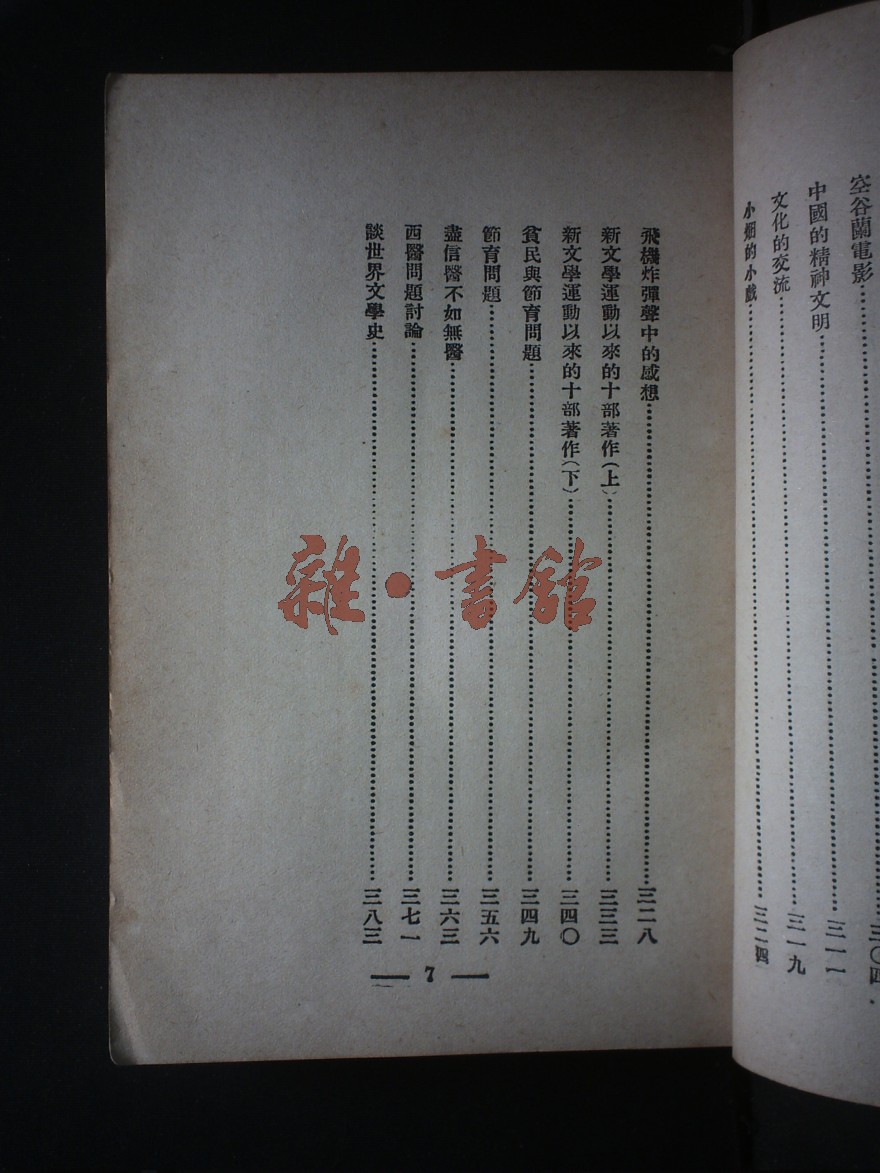 空谷蘭電影……三〇四
中國的精神文明……三一一
文化的交流……三一九
小畑的小戲……三二四
飛機炸彈聲中的感想……三二八
新文學運動以來的十部著作(上)……三三三
新文學運動以來的十部著作(下)……三四〇
貧民與節育問題……三四九
節育問題……三五六
盡信醫不如無醫……三六三
西醫問題討論……三七一
談世界文學史……三八三
7
雜·書館